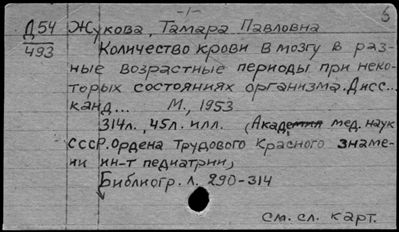 -1- 6
Д54 Жукова, Тамара Павловна
493 Количество крови в мозгу в раз-
ные возрастные периоды при неко-
торых состояниях организма. Дисс...
канд... М., 1953
314л., 45л. илл. (Академия мед. наук
СССР. Ордена Трудового Красного знаме-
ни ин-т педиатрии)
Библиогр. л. 290-314
см. сл. карт.